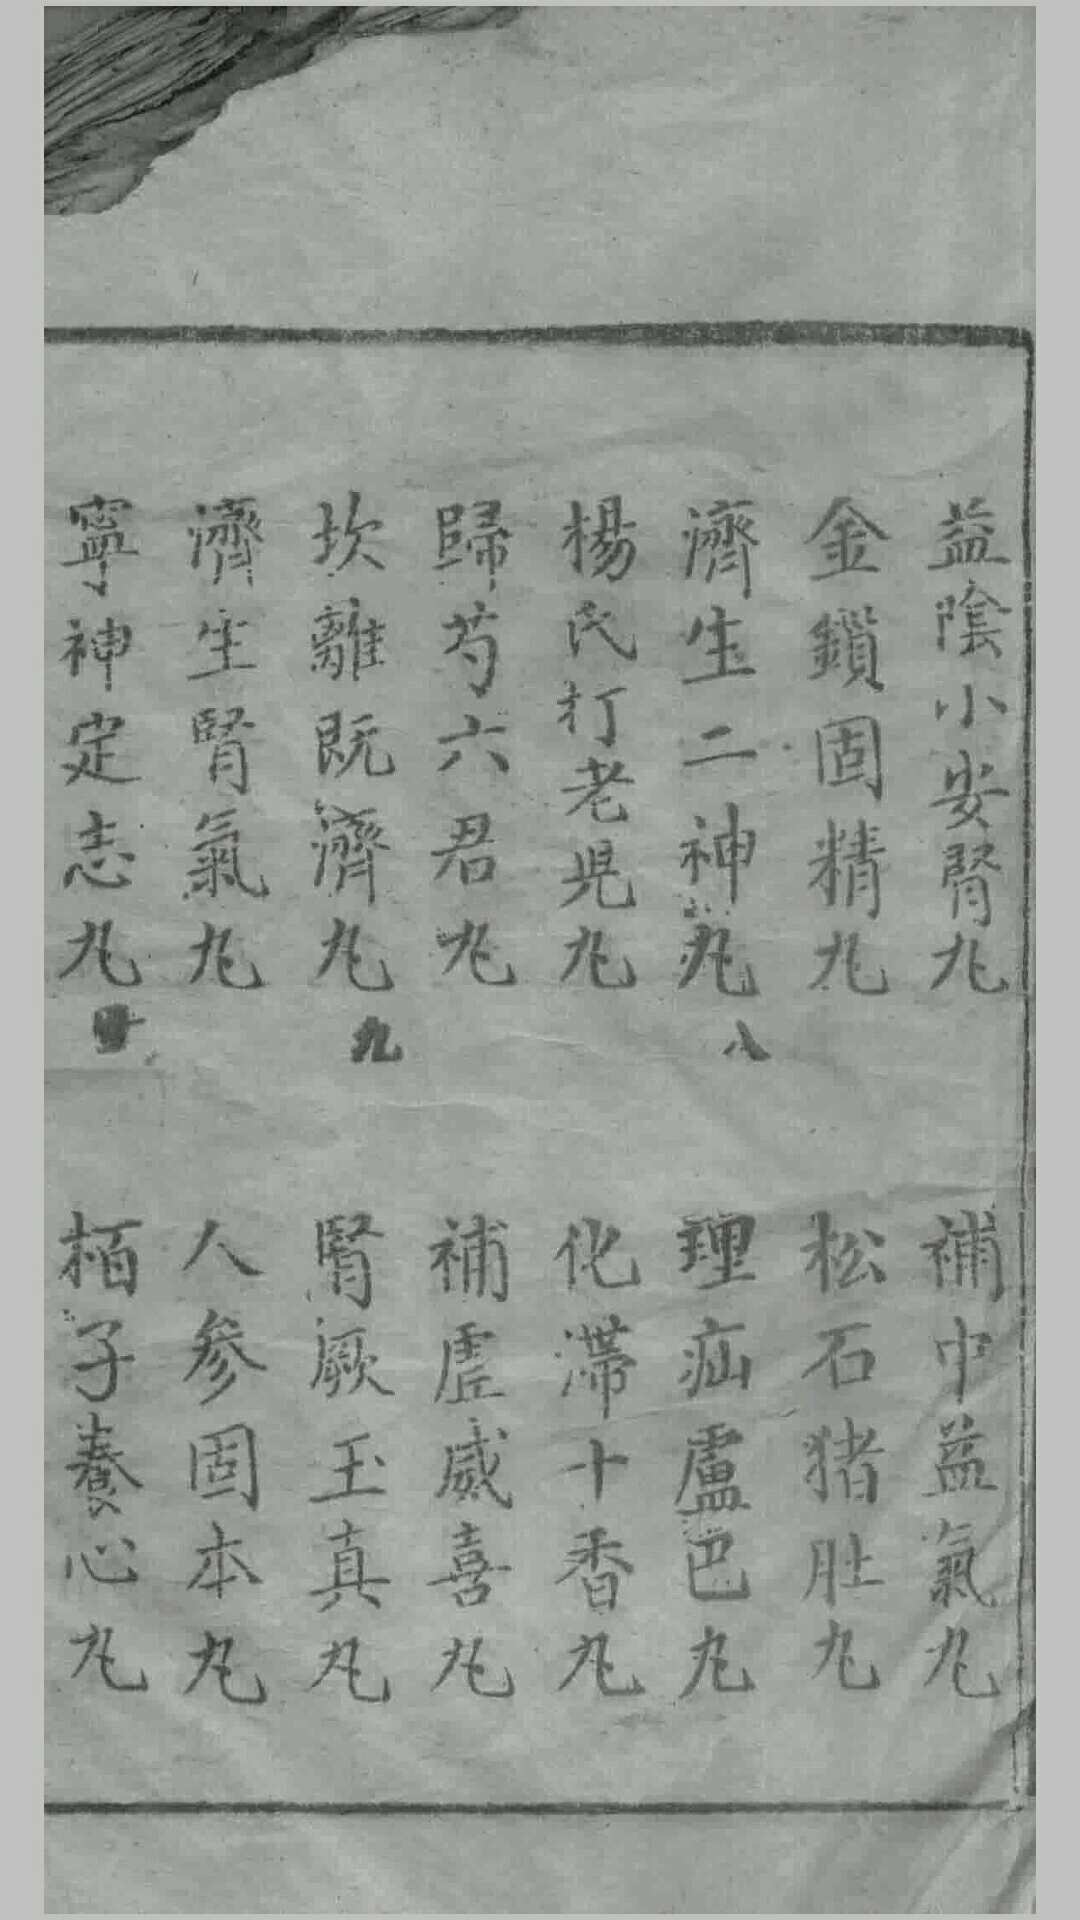 益陰小安腎丸
補中益氣丸
金鎖固精丸
松石猪肚丸
濟生二神丸
八
理疝盧巴丸
楊氏打老児丸
化滯十香丸
歸芍六君丸
補虛威喜丸
坎離既濟丸
九
腎厥玉真丸
濟生腎氣丸
人參固本丸
寧神定志丸
栢子養心丸